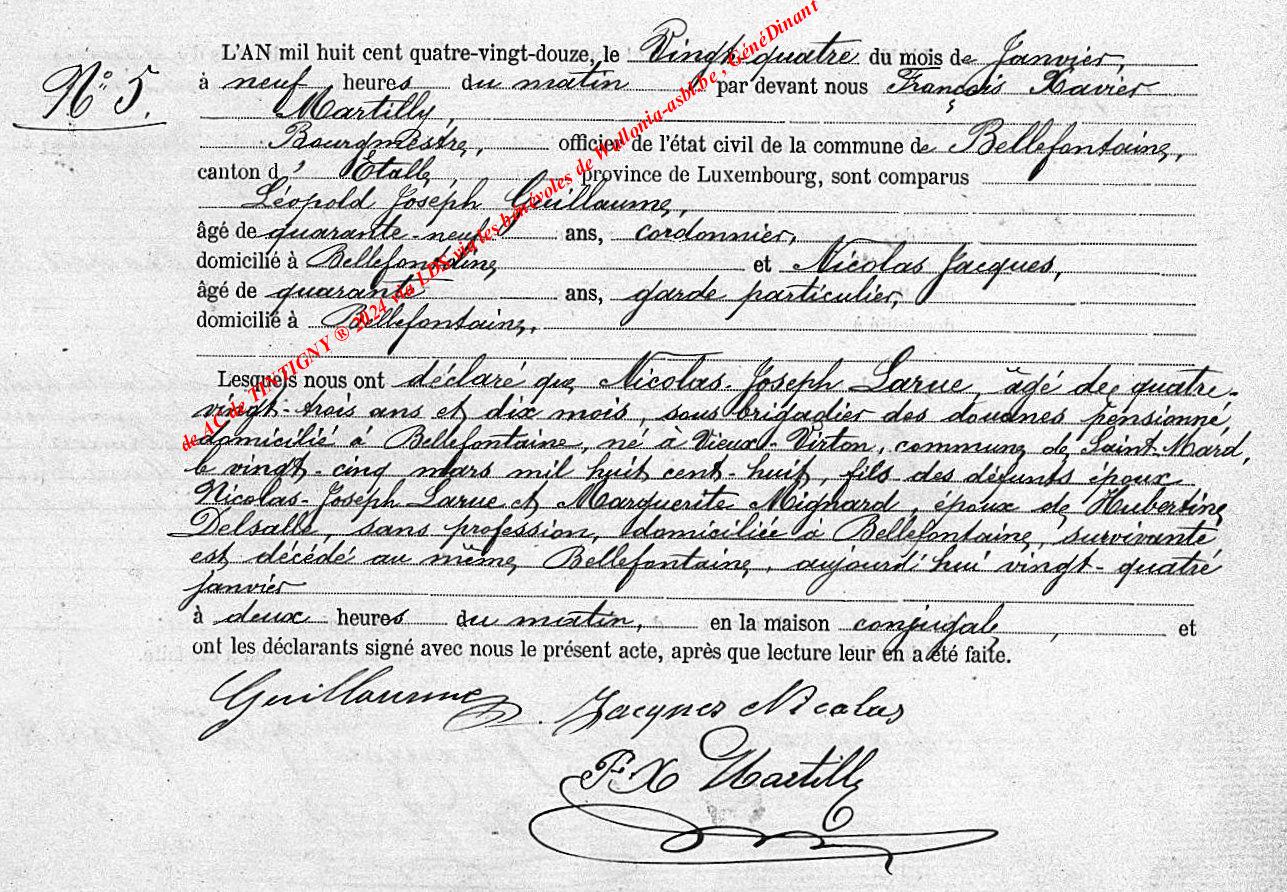 N° 5.
L'AN mil huit cent quatre-vingt-douze, le Vingt-quatre du mois de Janvier,
à neuf heures du matin par devant nous François Xavier
Martilly,
Bourgmestre, officier de l'état civil de la commune de Bellefontaine,
canton d' Etalle, province de Luxembourg, sont comparus
Léopold Joseph Guillaume,
âgé de quarante-neuf ans, cordonnier,
domicilié à Bellefontaine et Nicolas Jacques,
âgé de quarante ans, garde particulier,
domicilié à Bellefontaine.
Lesquels nous ont déclaré que Nicolas-Joseph Larue, âgé de quatre-
vingt-trois ans et dix mois, sous brigadier des douanes pensionné,
domicilié à Bellefontaine, né à Vieux-Virton, commune de Saint-Mard,
le vingt-cinq mars mil huit cent-huit, fils des défunts époux
Nicolas-Joseph Larue et Marguerite Mignard, époux de Hubertine
Delsalle, sans profession, domiciliée à Bellefontaine, survivante
est décédé au même Bellefontaine, aujourd'hui vingt-quatre
janvier
à deux heures du matin, en la maison conjugale, et
ont les déclarants signé avec nous le présent acte, après que lecture leur en a été faite.
Guillaume Jacques Nicolas
F X Martilly
de AC de TINTIGNY ® 2024 via LDS via les bénévoles de Wallonia-asbl.be , GénéDinant